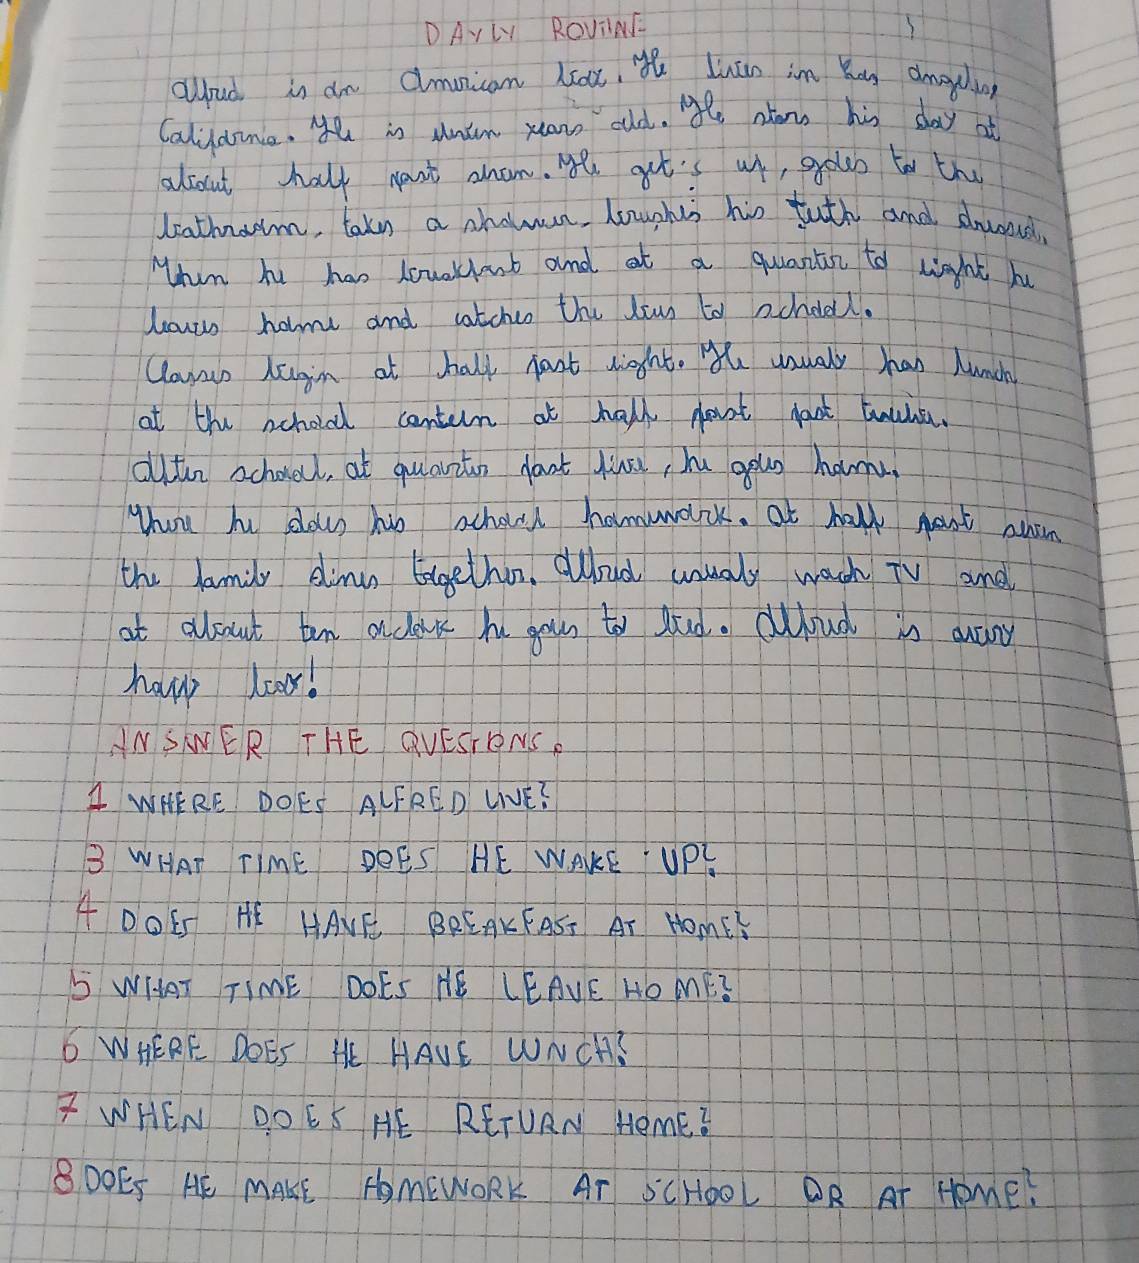 DAYLY ROUTINE
Alfred is an American boy. He lives in Los Angeles,
California. He is years old. He stars his day at
about half past seven. He get's up, goes to the
bathroom, takes a shower, brushes his teeth and dressed.
Then he has breakfast and at a quarter to eight he
leaves home and catches the bus to school.
Classes begin at half past eight. He usualy has lunch
at the school canteen at half past past twelve.
After school, at quarter past five, he goes home.
There he does his school homework. At half past seven
the family dines together. Alfred usualy wach TV and
at about ten oclock he goes to bed. Alfred is avery
happy boy!
ANSWER THE QUESTIONS.
1 WHERE DOES ALFRED LIVE?
3 WHAT TIME DOES HE WAKE UP?
4 DOES HE HAVE BREAKFAST AT HOME?
5 WHAT TIME DOES HE LEAVE HOME?
6 WHERE DOES HE HAVE LUNCH?
7 WHEN DOES HE RETURN HOME?
8 DOES HE MAKE HOMEWORK AT SCHOOL OR AT HOME?